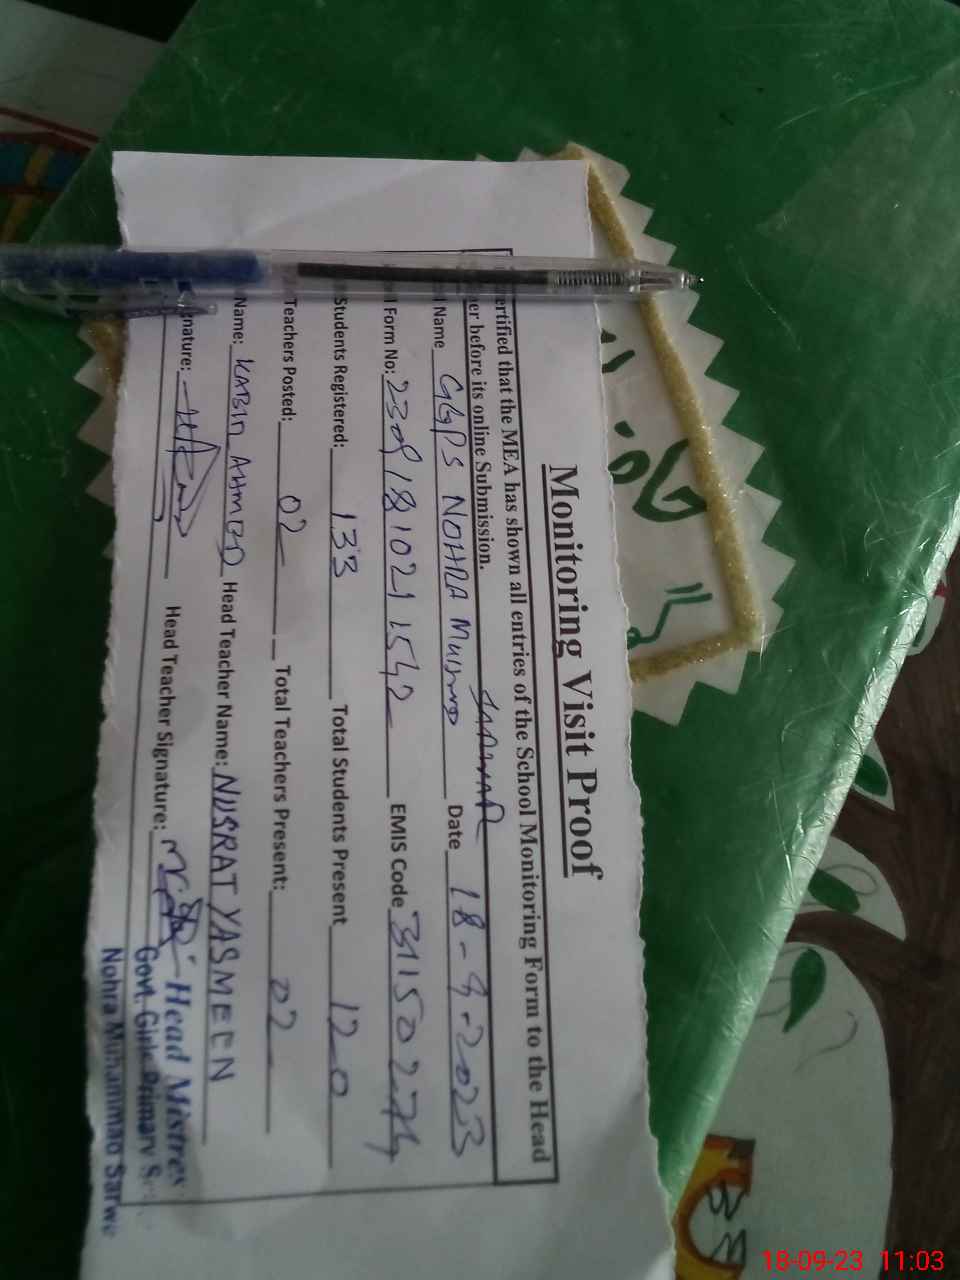 Monitoring Visit Proof
ertified that the MEA has shown all entries of the School Monitoring Form to the Head
er before its online Submission.
SARWAR
Name GGPS NOHRA Muhmd Date 18-9-2023
Form No: 23091810211542 EMIS Code 31150274
Students Registered: 133 Total Students Present 120
Teachers Posted: 02 Total Teachers Present: 02
Name: KABIR AHMED Head Teacher Name: NUSRAT YASMEEN
gnature: Head Teacher Signature:
Head Mistres
Govt. Girls Primary S
Nohra Muhammad Sarwa
18-09-23 11:03